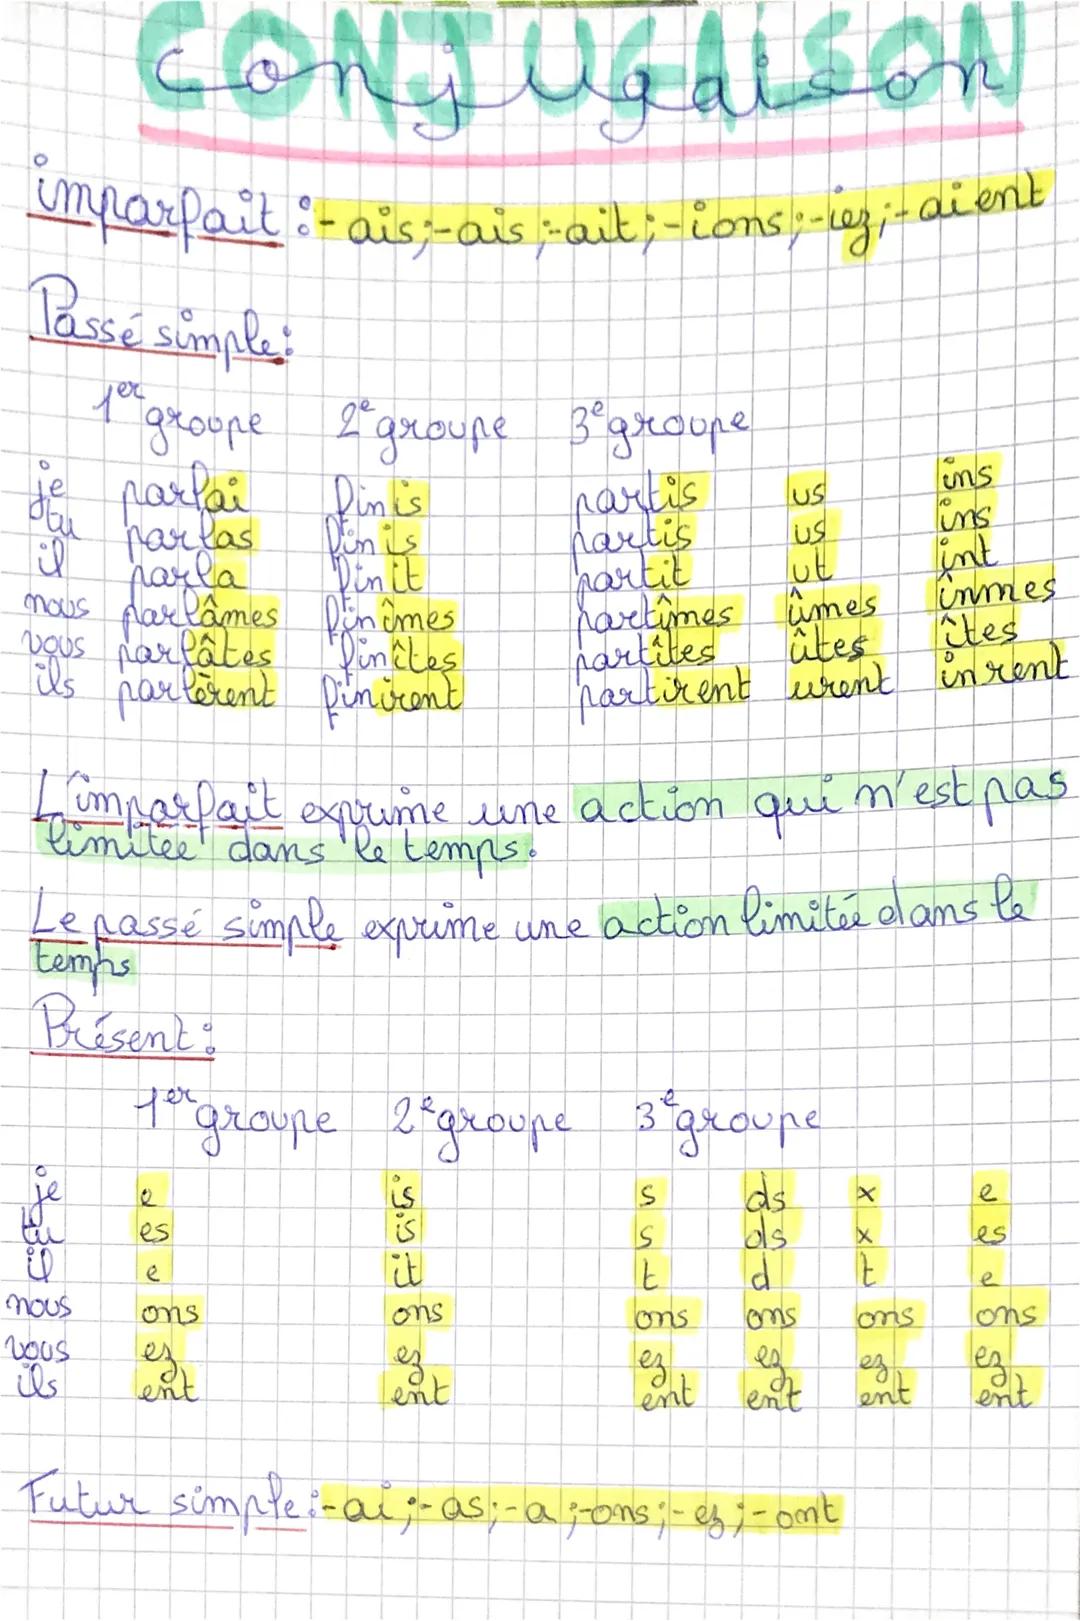 CONJUGAISON
conjugaison
imparfait : -ais ; -ais ; -ait ; -ions ; -iez ; -aient
Passé simple :
1er groupe 2e groupe 3e groupe
je parlai finis partis us ins
tu parlas finis partis us ins
il parla finit partit ut int
nous parlâmes finîmes partîmes ûmes înmes
vous parlâtes finîtes partîtes ûtes îtes
ils parlèrent finirent partirent urent inrent
L'imparfait exprime une action qui n'est pas
limitée dans le temps.
Le passé simple exprime une action limitée dans le
temps
Présent :
1er groupe 2e groupe 3e groupe
je e is s ds x e
tu es is s ds x es
il e it t d t e
nous ons ons ons ons ons ons
vous ez ez ez ez ez ez
ils ent ent ent ent ent ent
Futur simple : -ai ; -as ; -a ; -ons ; -ez ; -ont